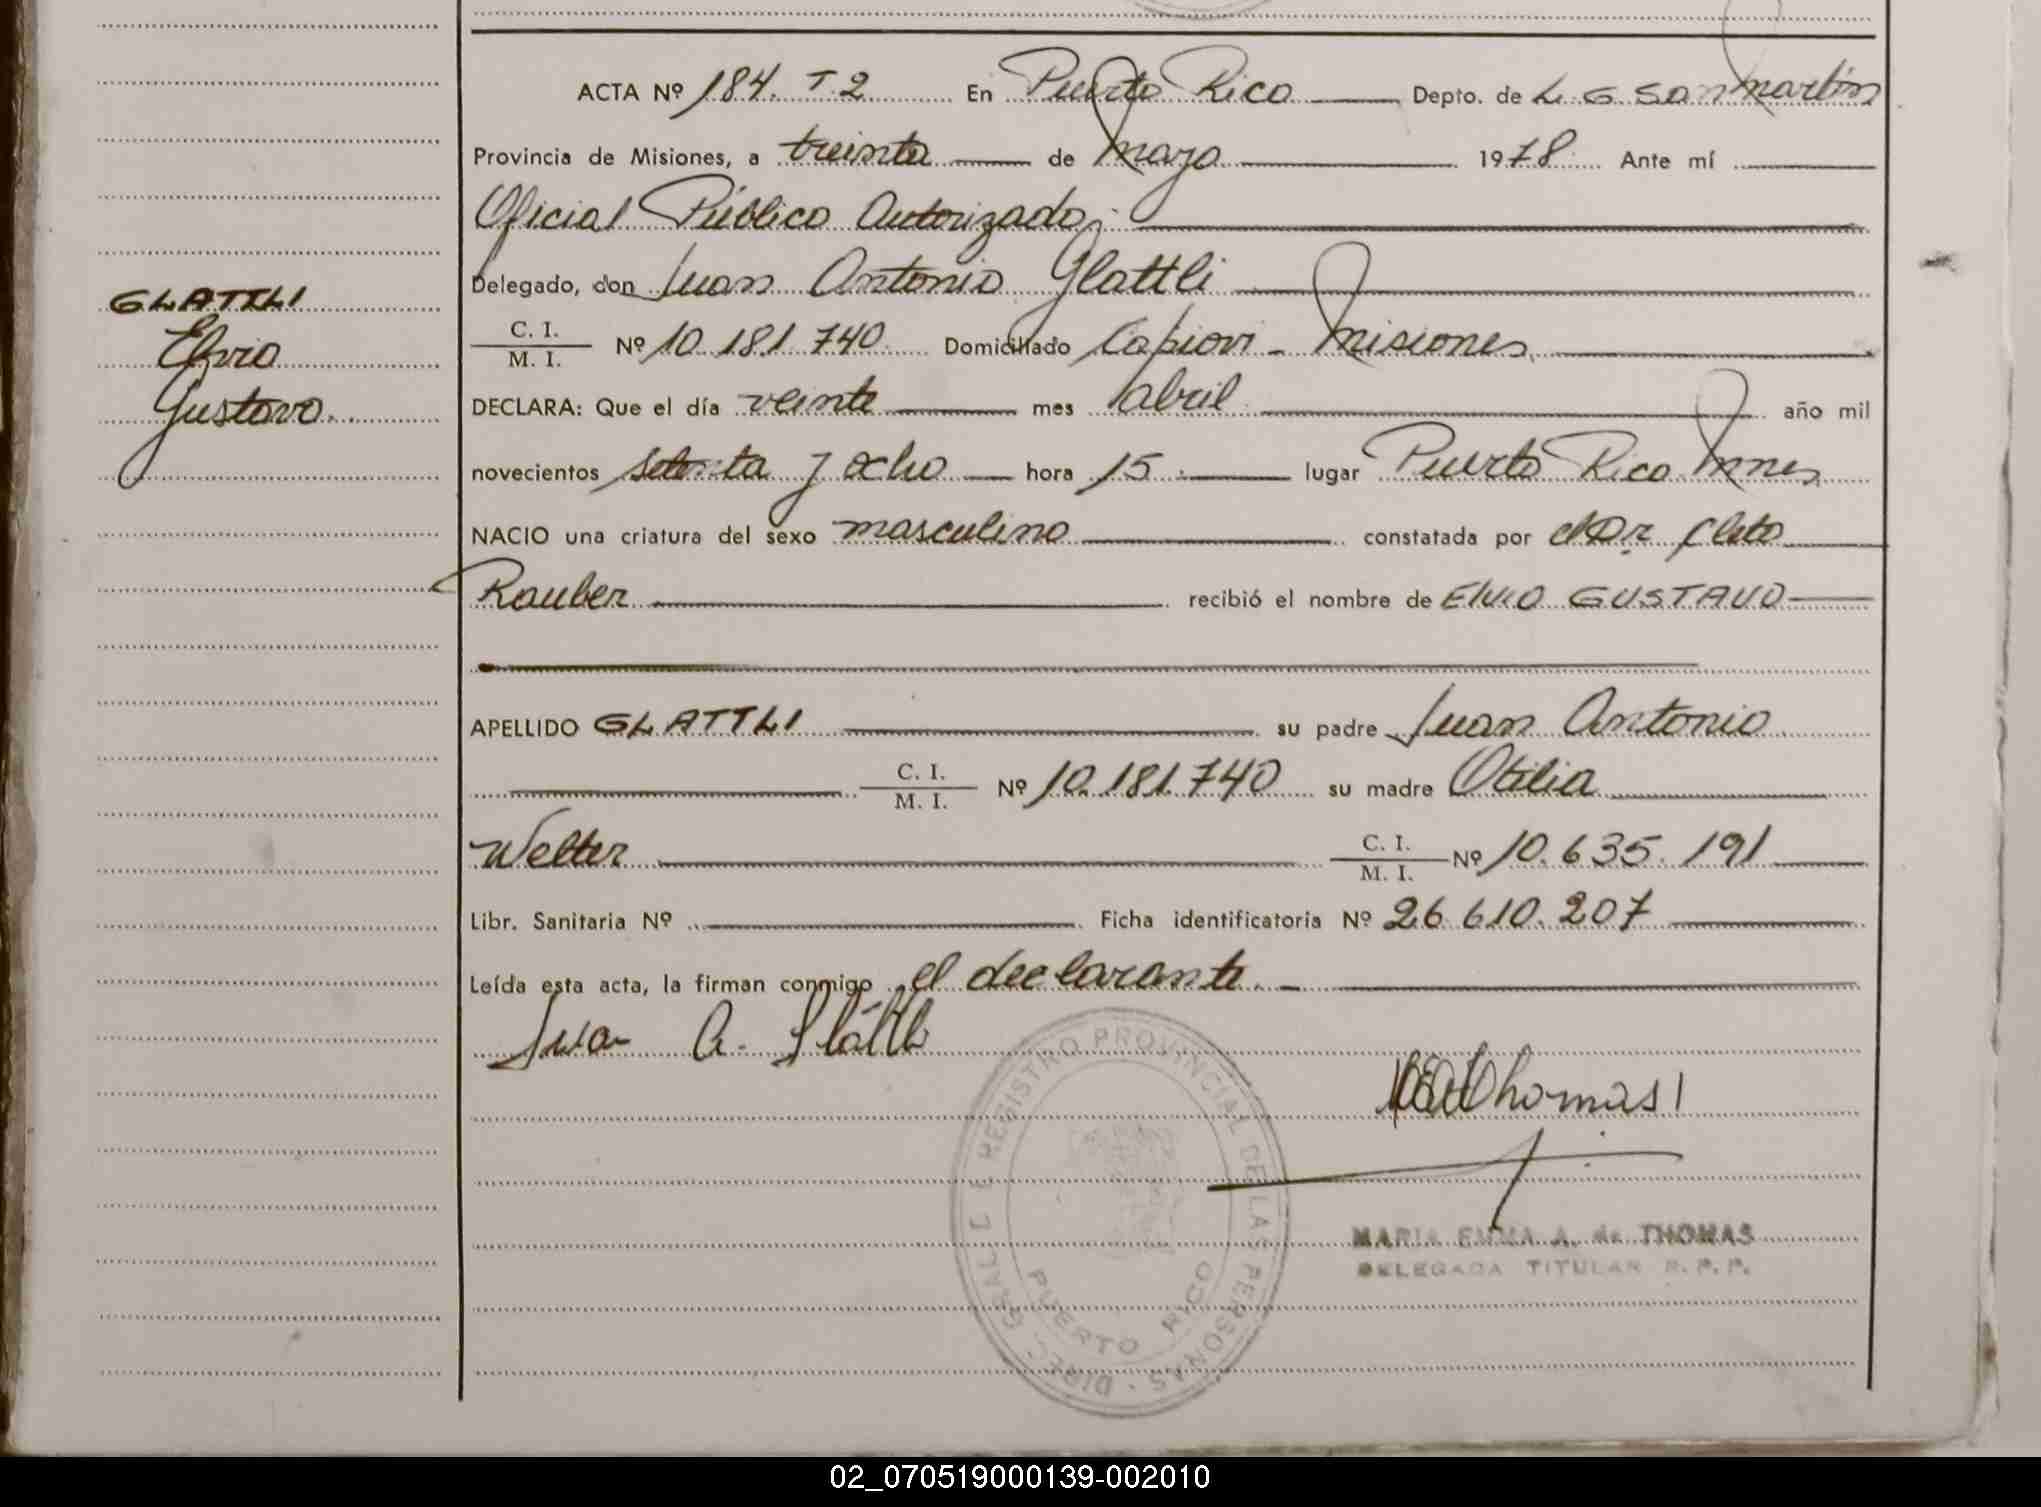 ACTA Nº 184. T 2 En Puerto Rico Depto. de L. G. San Martín
Provincia de Misiones, a treinta de Mayo 1978 Ante mí
Oficial Público Autorizado,
Delegado, don Juan Antonio Glattli
GLATTLI
C. I.
M. I. Nº 10.181.740 Domiciliado Capiovi - Misiones
Elvio
DECLARA: Que el día veinte mes abril año mil
Gustavo.
novecientos setenta y ocho hora 15. lugar Puerto Rico Mnes
NACIO una criatura del sexo masculino constatada por el Dr Cleto
Rauber recibió el nombre de Elvio GUSTAVO
APELLIDO GLATTLI su padre Juan Antonio
C. I.
M. I. Nº 10.181.740 su madre Otilia
Welter C. I.
M. I. Nº 10.635.191
Libr. Sanitaria Nº Ficha identificatoria Nº 26.610.207
Leída esta acta, la firman conmigo el declarante.
Juan A. Glättli
Thomas
DIREC. GRAL. D E. REGISTRO PROVINCIAL DE LAS PERSONAS
PUERTO RICO
MARIA EMMA A. de THOMAS
DELEGADA TITULAR R. P. P.
02_070519000139-002010